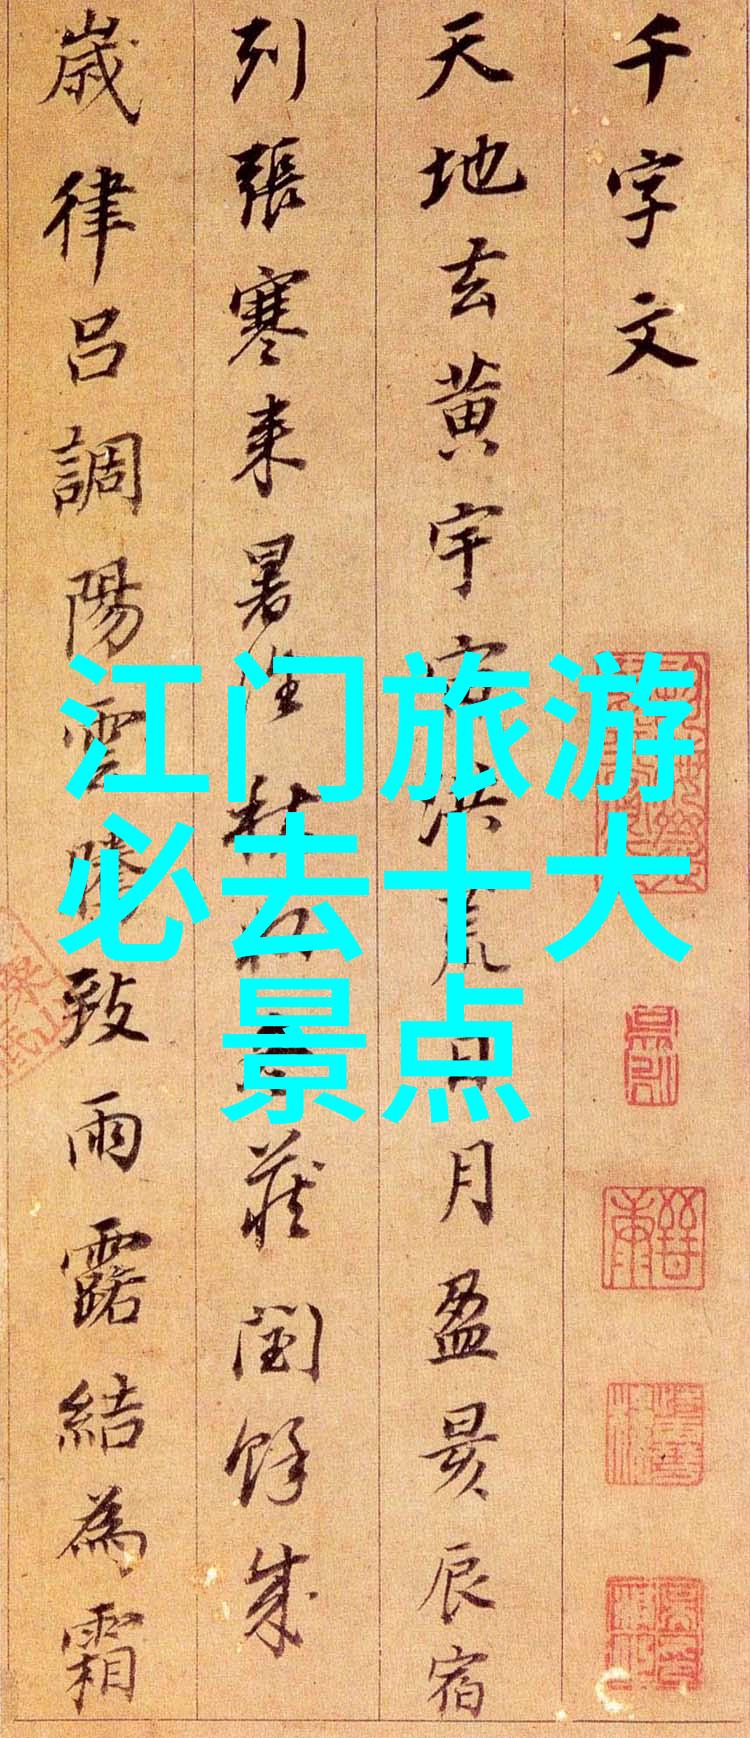 千字文
天地玄黄宇宙洪荒日月盈昃辰宿
列張寒来暑往秋收冬藏閏餘成
歲律吕調陽雲騰致雨露結為霜
江门旅游
必去十大
景点